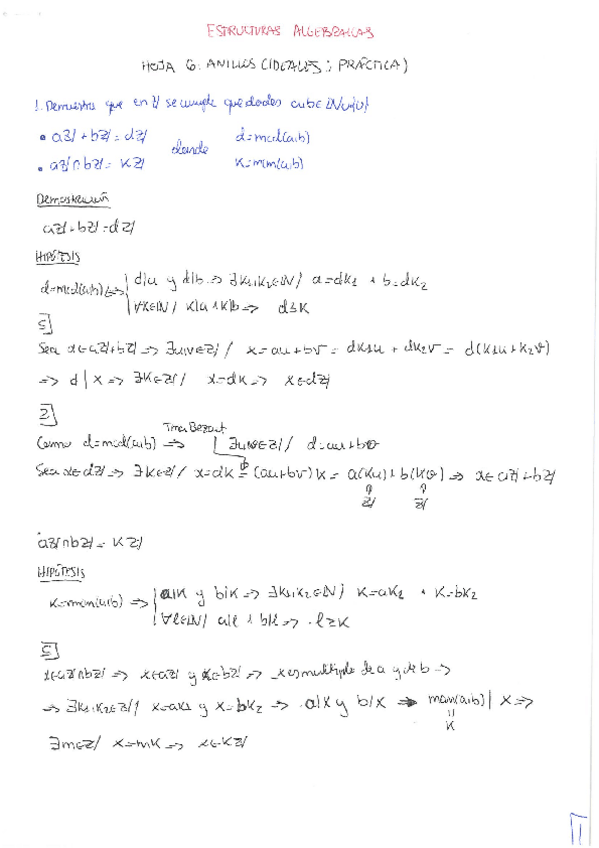 ESTRUCTURAS ALGEBRAICAS
HOJA 6: ANILLOS (IDEALES; PRÁCTICA)
1. Demuestra que en ℤ se cumple que dados a,b∈ℕ∪{0}
• aℤ+bℤ=dℤ donde d=mcd(a,b)
• aℤ∩bℤ=Kℤ K=mcm(a,b)
Demostración
aℤ+bℤ=dℤ
HIPÓTESIS
d=mcd(a,b) ⇔ d|a y d|b ⇒ ∃k₁,k₂∈ℕ/ a=dk₁ ∧ b=dk₂
∀K∈ℕ/ K|a ∧ K|b ⇒ d≥K
⊆]
Sea x∈aℤ+bℤ ⇒ ∃u,v∈ℤ/ x=au+bv = dk₁u + dk₂v = d(k₁u+k₂v)
⇒ d|x ⇒ ∃K∈ℤ/ x=dK ⇒ x∈dℤ
⊇]
Tma Bezout
Como d=mcd(a,b) ⇒ ∃u,v∈ℤ/ d=au+bv
Sea x∈dℤ ⇒ ∃K∈ℤ/ x=dK = (au+bv)K = a(Ku)+b(Kv) ⇒ x∈aℤ+bℤ
ℤ ℤ
aℤ∩bℤ = Kℤ
HIPÓTESIS
K=mcm(a,b) ⇒ a|K y b|K ⇒ ∃k₁,k₂∈ℕ/ K=ak₁ ∧ K=bk₂
∀l∈ℕ/ a|l ∧ b|l ⇒ l≥K
⊆]
x∈aℤ∩bℤ ⇒ x∈aℤ y x∈bℤ ⇒ x es multiplo de a y de b ⇒
⇒ ∃k₁,k₂∈ℤ/ x=ak₁ y x=bk₂ ⇒ a|x y b|x ⇒ mcm(a,b)|x ⇒
=
K
∃m∈ℤ/ x=mK ⇒ x∈Kℤ
1